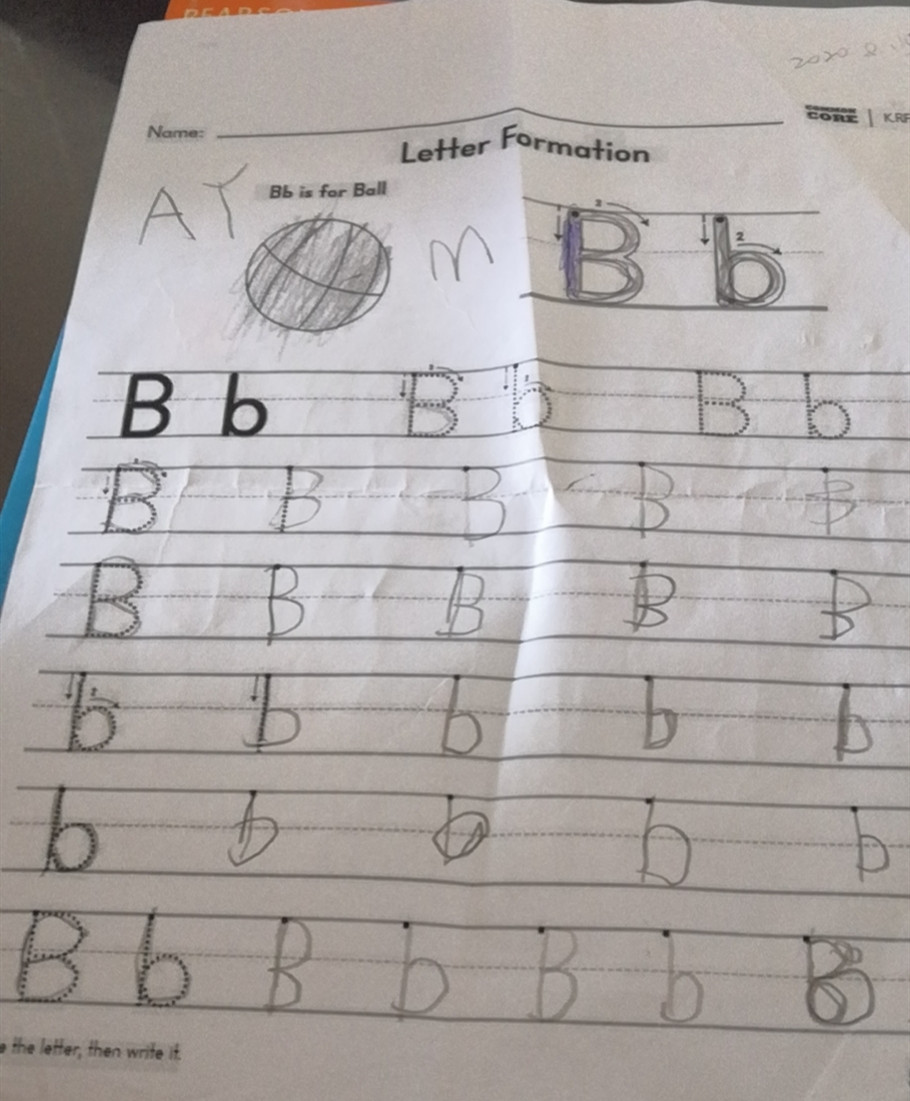 PEARSON
2020 8.
Name:
COMMON CORE | K.RF
Letter Formation
Bb is for Ball
A Y M
B b
B b B b B b
B B B B B
B B B B B
b b b b b
b b b b b
B b B b B b B
the letter, then write it.